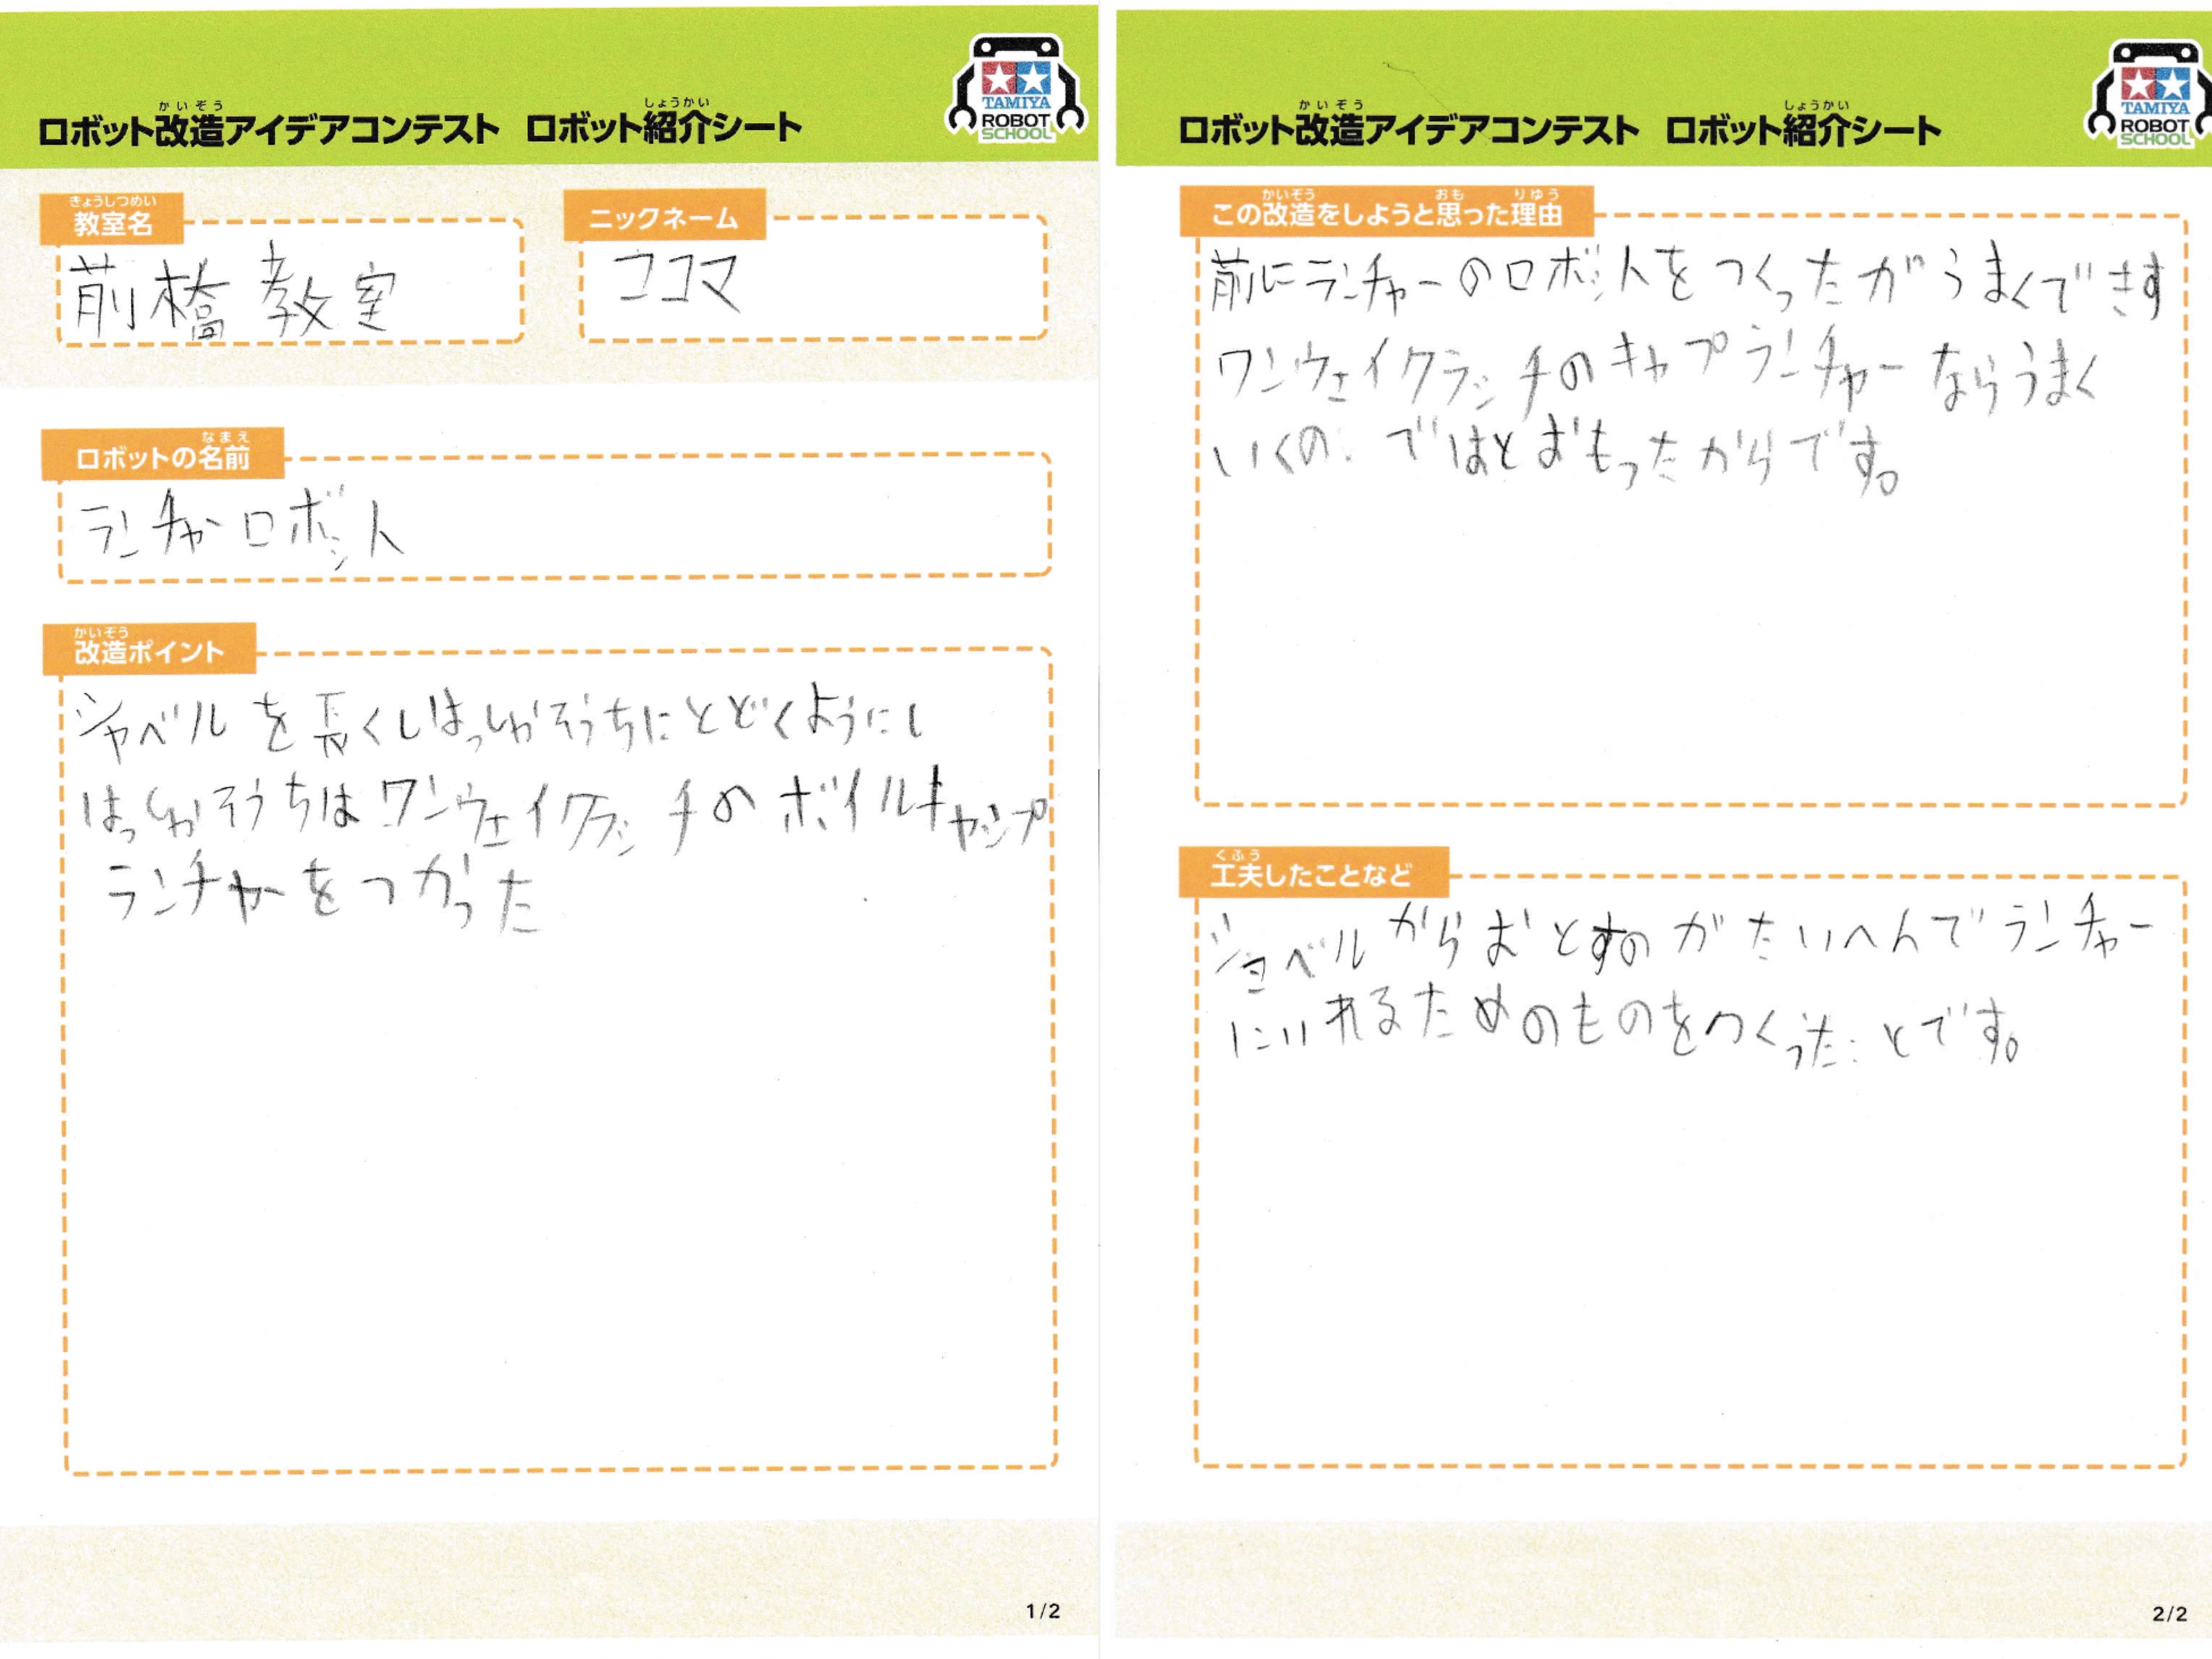 かいぞう しょうかい
ロボット改造アイデアコンテスト ロボット紹介シート
TAMIYA
ROBOT
SCHOOL
きょうしつめい
教室名
前橋教室
ニックネーム
ココマ
なまえ
ロボットの名前
ランチャーロボット
かいぞう
改造ポイント
シャベルを長くしはっしゃそうちにとどくようにし
はっしゃそうちはワンウェイクラッチのボイルキャップ
ランチャーをつかった
1/2
かいぞう しょうかい
ロボット改造アイデアコンテスト ロボット紹介シート
TAMIYA
ROBOT
SCHOOL
かいぞう おも りゆう
この改造をしようと思った理由
前にランチャーのロボットをつくったがうまくできす
ワンウェイクラッチのキャプランチャーならうまく
いくのではとおもったからです。
くふう
工夫したことなど
ショベルからおとすのがたいへんでランチャー
にいれるためのものをつくったことです。
2/2